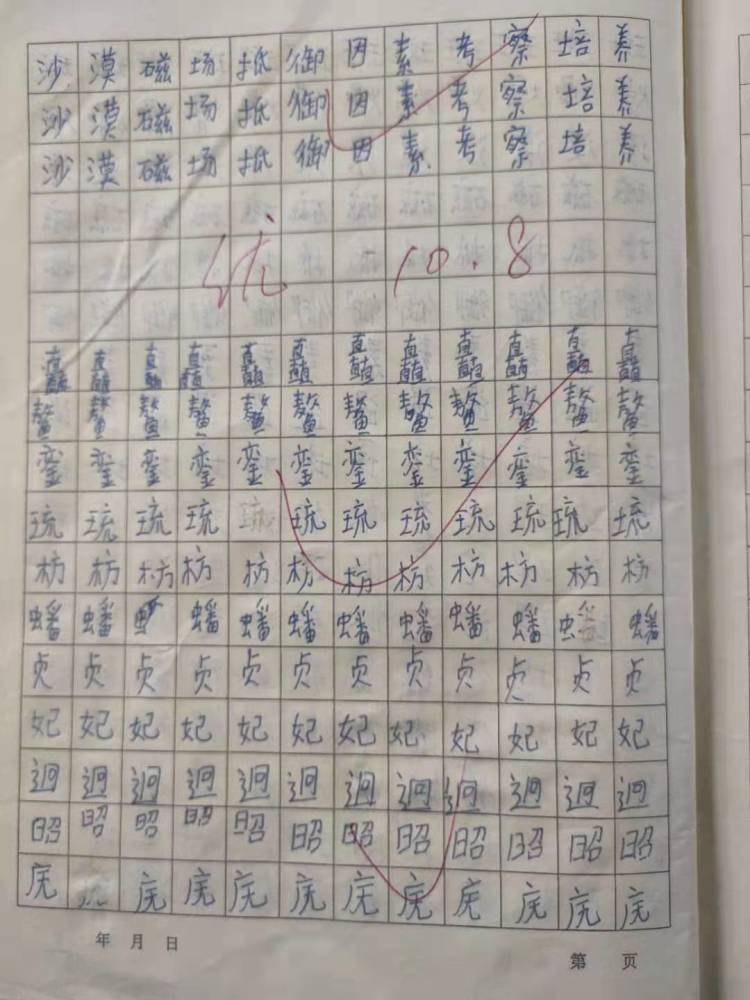 沙漠磁场抵御因素考察培养
沙漠磁场抵御因素考察培养
沙漠磁场抵御因素考察培养
优 10.8
矗矗矗矗矗矗矗矗矗矗矗矗
鳌鳌鳌鳌鳌鳌鳌鳌鳌鳌鳌鳌
銮銮銮銮銮銮銮銮銮銮銮銮
琉琉琉琉琉琉琉琉琉琉琉琉
枋枋枋枋枋枋枋枋枋枋枋枋
蟠蟠蟠蟠蟠蟠蟠蟠蟠蟠蟠
贞贞贞贞贞贞贞贞贞贞贞贞
妃妃妃妃妃妃妃妃妃妃妃妃
迥迥迥迥迥迥迥迥迥迥迥迥
昭昭昭昭昭昭昭昭昭昭昭昭
年 月 日
第 页